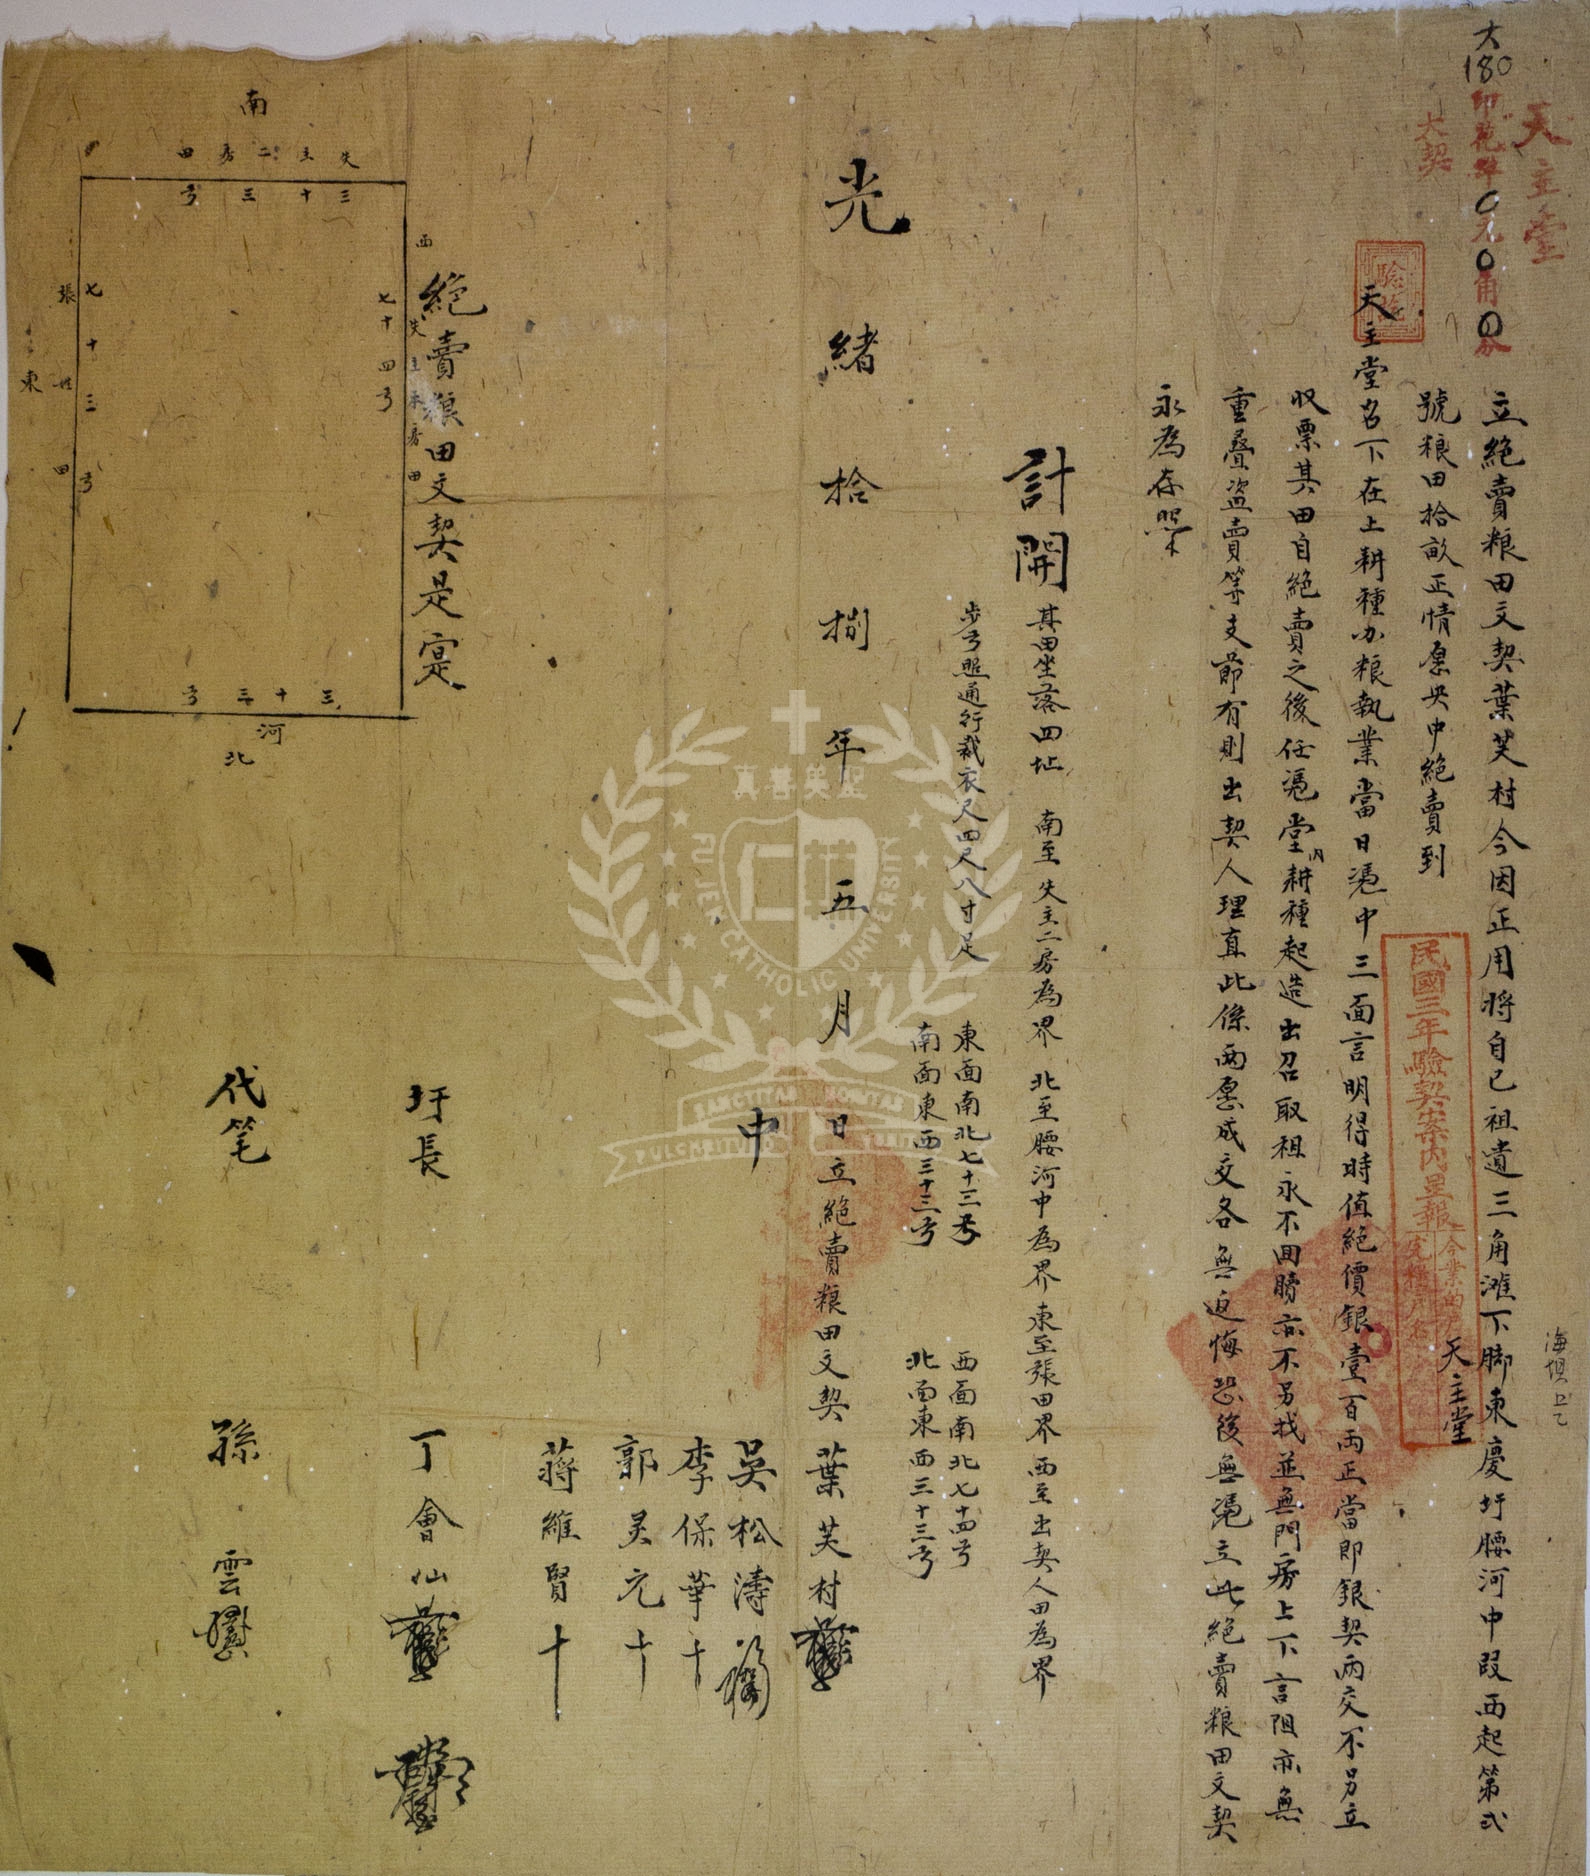 大
180
天主堂
大契
印花洋0元0角0分
驗訖
立絕賣粮田文契葉芙村今因正用將自已祖遺三角滩下脚東慶圩腰河中段西起第弍
號粮田拾畝正情愿央中絕賣到
天主堂名下在上耕種办粮執業當日憑中三面言明得時值絕價銀壹百両正當即銀契両交不另立
收票其田自絕賣之後任憑堂內耕種起造出召取租永不回贖亦不另找並無門房上下言阻亦無
重疊盜賣等支節有則出契人理直此係両愿成交各無追悔恐後無憑立此絕賣粮田文契
永為存照
民國三年驗契案內呈報
今業
完粮户名
天主堂
海埧
計開
其田坐落四址 南至失主二房為界 北至腰河中為界 東至張田界 西至出契人田為界
步弓照通行裁衣尺四尺八寸足
東面南北七十三弓
南面東西三十三弓
西面南北七十四弓
北面東西三十三弓
光緒拾捌年五月 日立絕賣粮田文契 葉芙村
中
吳松濤
李保華 十
郭灵元 十
蔣維賢 十
圩長 丁會仙
代笔 孫雲
絕賣粮田文契是寔
南
失主二房田
三十三弓
西
失主本房田
七十四弓
東
張姓田
七十三弓
三十三弓
河
北
真善美聖
FU JEN CATHOLIC UNIVERSITY
SANCTITAS
BONITAS
PULCHRITUDO
VERITAS